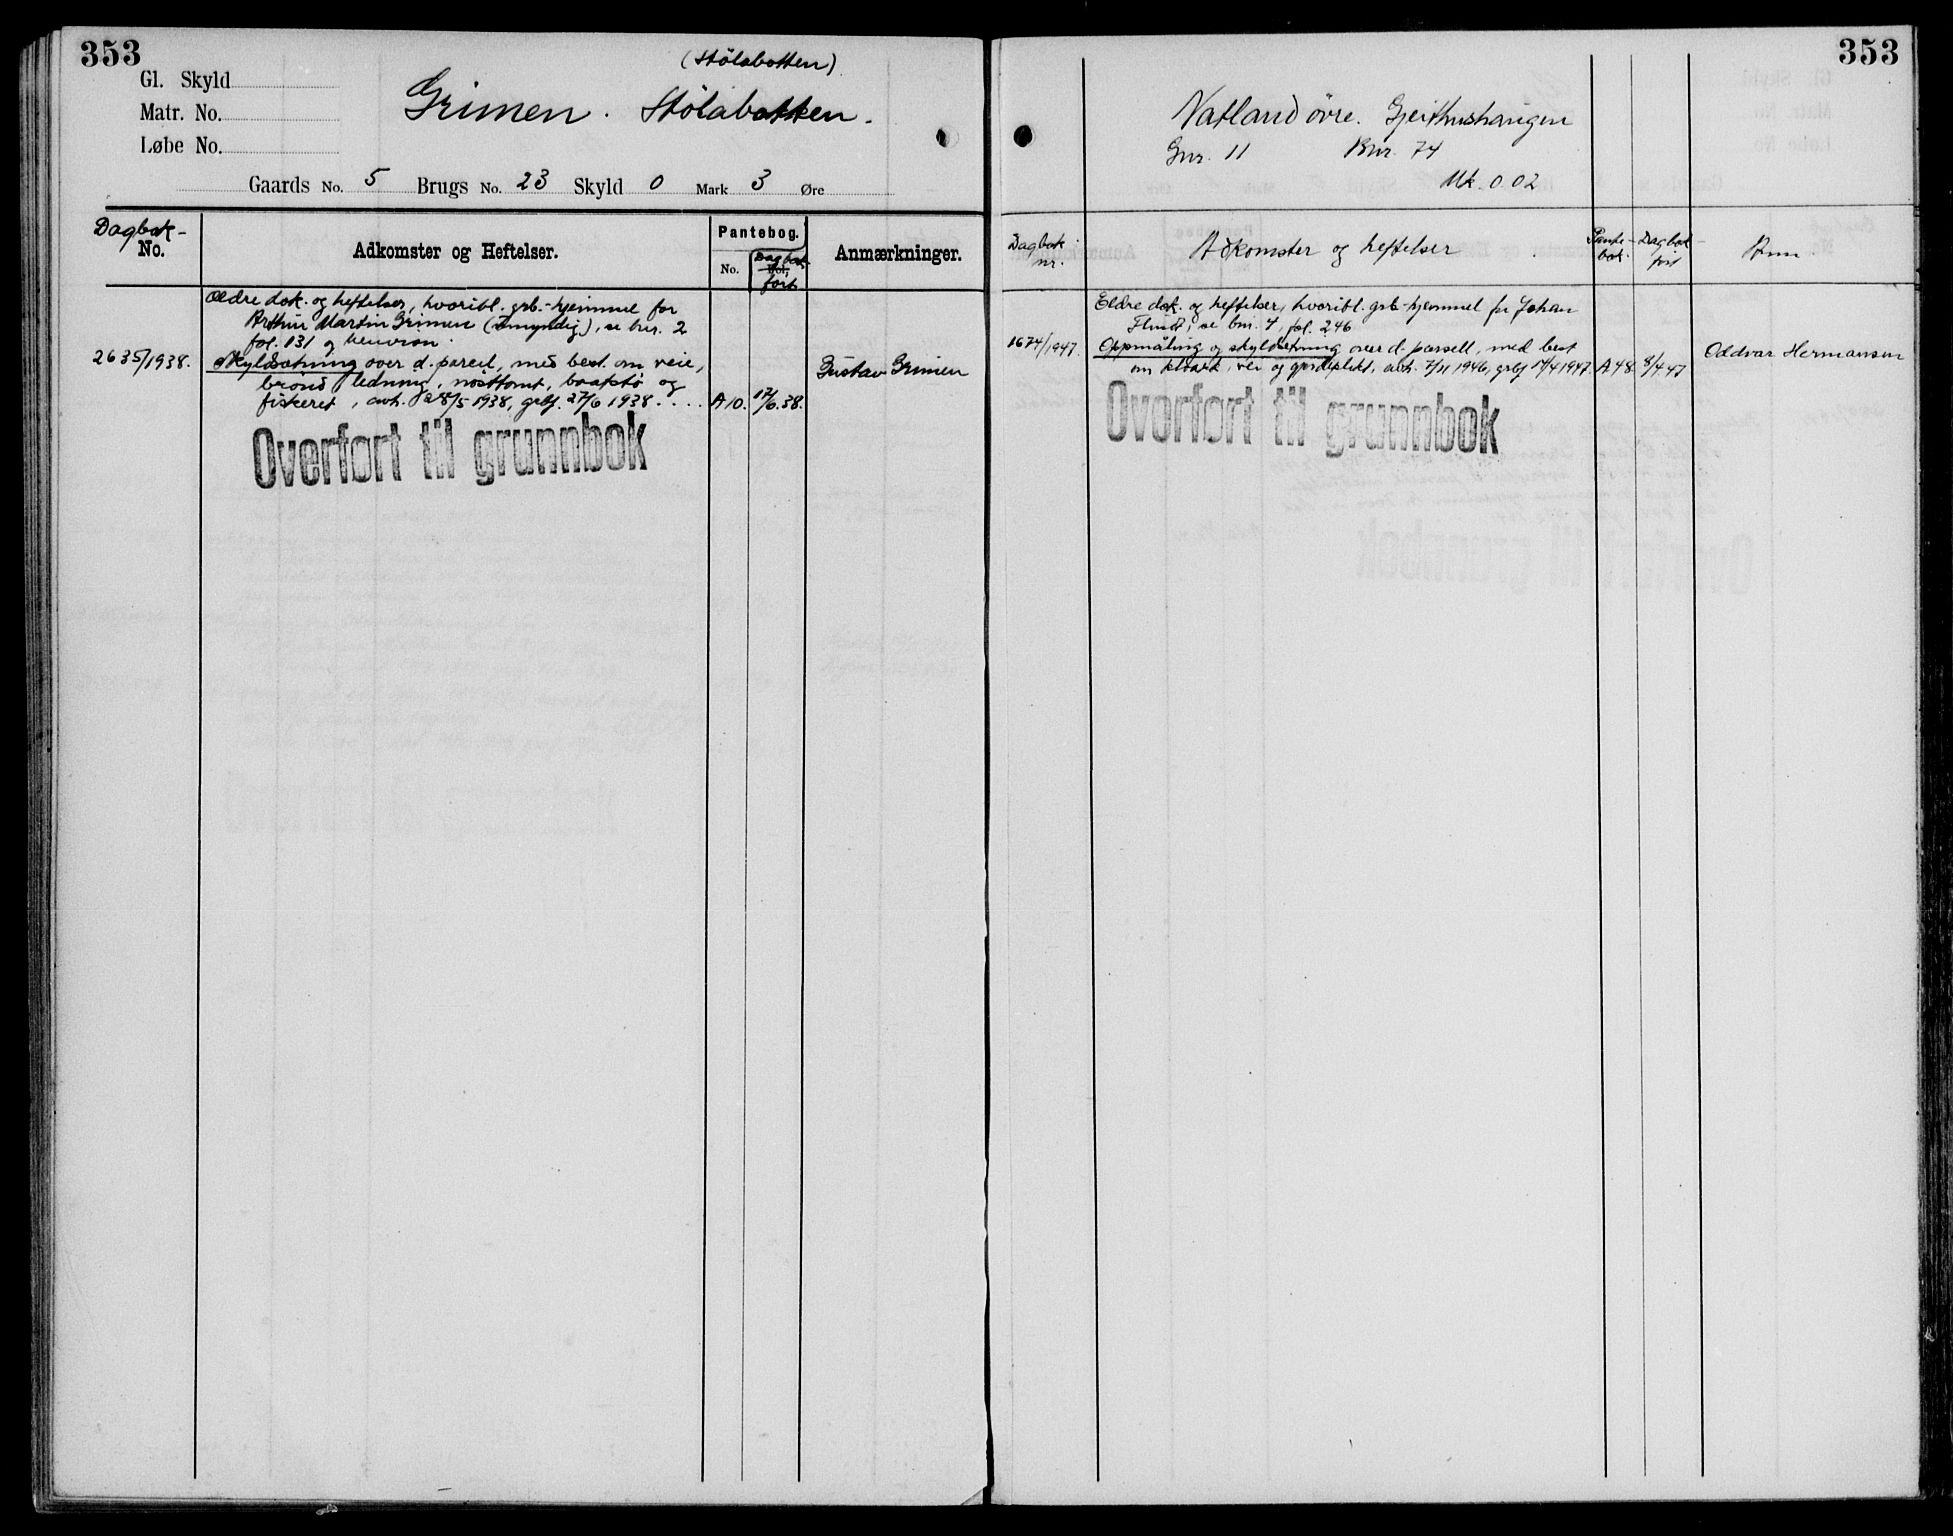 353
Gl. Skyld
Matr. No.
Løbe No.
(Stølabotten)
Grimen. Stølabotten.
Gaards No. 5 Brugs No. 23 Skyld 0 Mark 3 Øre
Dagbok-
No.
Adkomster og Heftelser.
Pantebog.
No.
Dagbok
Fol.
ført
Anmærkninger.
Ældre dok. og heftelser, hvoribl. grb.-hjemmel for
Arthur Martin Grimen (umyndig), se bnr. 2
fol. 131 og henvisn.
2635/1938. Skyldsetning over d. parcel, med best. om veie,
brønd, ledning, nosttomt, baatstø og
fiskeret, avh. 28/5 1938, grbf. 27/6 1938. A 10. 17/6.38. Gustav Grimen
Overført til grunnbok
353
Natland øvre. Gjeithushaugen
Gnr. 11 Bnr. 74
Mk. 0.02
Dagbok
nr.
Adkomster og heftelser
Pante-
bok.
Dagbok-
ført
Anm.
Eldre dok. og heftelser, hvoribl. grb-hjemmel for Johan
se bnr. 4, fol. 246
1674/1947. Oppmåling og skyldsetning over d. parsell, med best
om kloakk, vei og gjerdeplikt, avh. 7/11 1946, grbf 14/4 1947. A 48. 8/4.47 Oddvar Hermansen
Overført til grunnbok